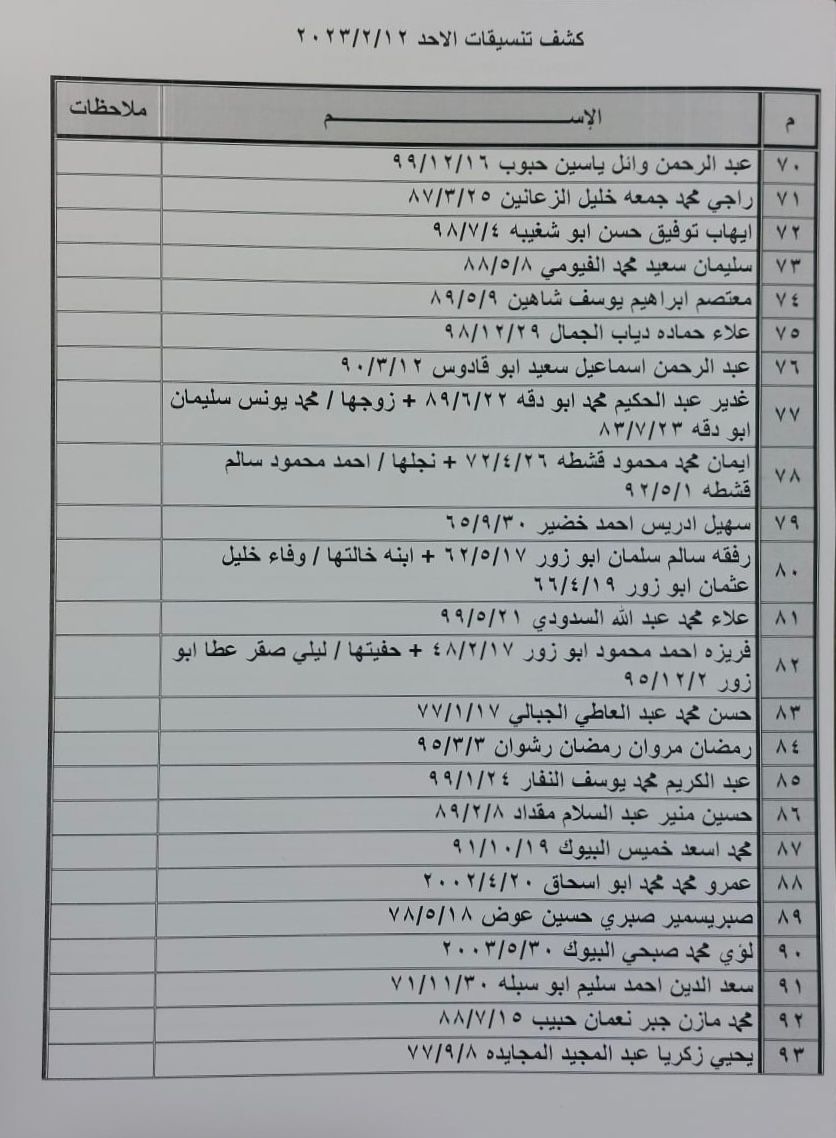 كشف تنسيقات الاحد ٢٠٢٣/٢/١٢
م الإســـــــــــــــــــــم ملاحظات
٧٠ عبد الرحمن وائل ياسين حبوب ٩٩/١٢/١٦
٧١ راجي محمد جمعه خليل الزعانين ٨٧/٣/٢٥
٧٢ ايهاب توفيق حسن ابو شغيبه ٩٨/٧/٤
٧٣ سليمان سعيد محمد الفيومي ٨٨/٥/٨
٧٤ معتصم ابراهيم يوسف شاهين ٨٩/٥/٩
٧٥ علاء حماده دياب الجمال ٩٨/١٢/٢٩
٧٦ عبد الرحمن اسماعيل سعيد ابو قادوس ٩٠/٣/١٢
٧٧ غدير عبد الحكيم محمد ابو دقه ٨٩/٦/٢٢ + زوجها / محمد يونس سليمان
ابو دقه ٨٣/٧/٢٣
٧٨ ايمان محمد محمود قشطه ٧٢/٤/٢٦ + نجلها / احمد محمود سالم
قشطه ٩٢/٥/١
٧٩ سهيل ادريس احمد خضير ٦٥/٩/٣٠
٨٠ رفقه سالم سلمان ابو زور ٦٢/٥/١٧ + ابنه خالتها / وفاء خليل
عثمان ابو زور ٦٦/٤/١٩
٨١ علاء محمد عبد الله السدودي ٩٩/٥/٢١
٨٢ فريزه احمد محمود ابو زور ٤٨/٢/١٧ + حفيتها / ليلي صقر عطا ابو
زور ٩٥/١٢/٢
٨٣ حسن محمد عبد العاطي الجبالي ٧٧/١/١٧
٨٤ رمضان مروان رمضان رشوان ٩٥/٣/٣
٨٥ عبد الكريم محمد يوسف النفار ٩٩/١/٢٤
٨٦ حسين منير عبد السلام مقداد ٨٩/٢/٨
٨٧ محمد اسعد خميس البيوك ٩١/١٠/١٩
٨٨ عمرو محمد محمد ابو اسحاق ٢٠٠٢/٤/٢٠
٨٩ صبريسمير صبري حسين عوض ٧٨/٥/١٨
٩٠ لؤي محمد صبحي البيوك ٢٠٠٣/٥/٣٠
٩١ سعد الدين احمد سليم ابو سبله ٧١/١١/٣٠
٩٢ محمد مازن جبر نعمان حبيب ٨٨/٧/١٥
٩٣ يحيي زكريا عبد المجيد المجايده ٧٧/٩/٨